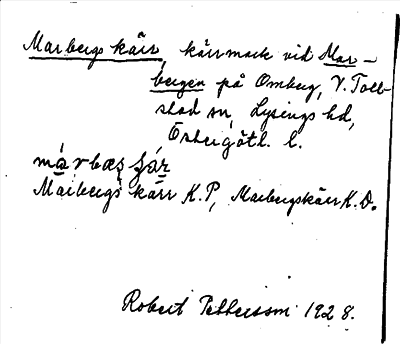 Marbergs kärr, kärrmark vid Mar-
bergen på Omberg, V. Toll-
stad sn, Lysings hd,
Östergötl. l.
márbæs̨ ʃár
Marbergs kärr K.P, Marbergskärr K.D.
Robert Pettersson 1928.